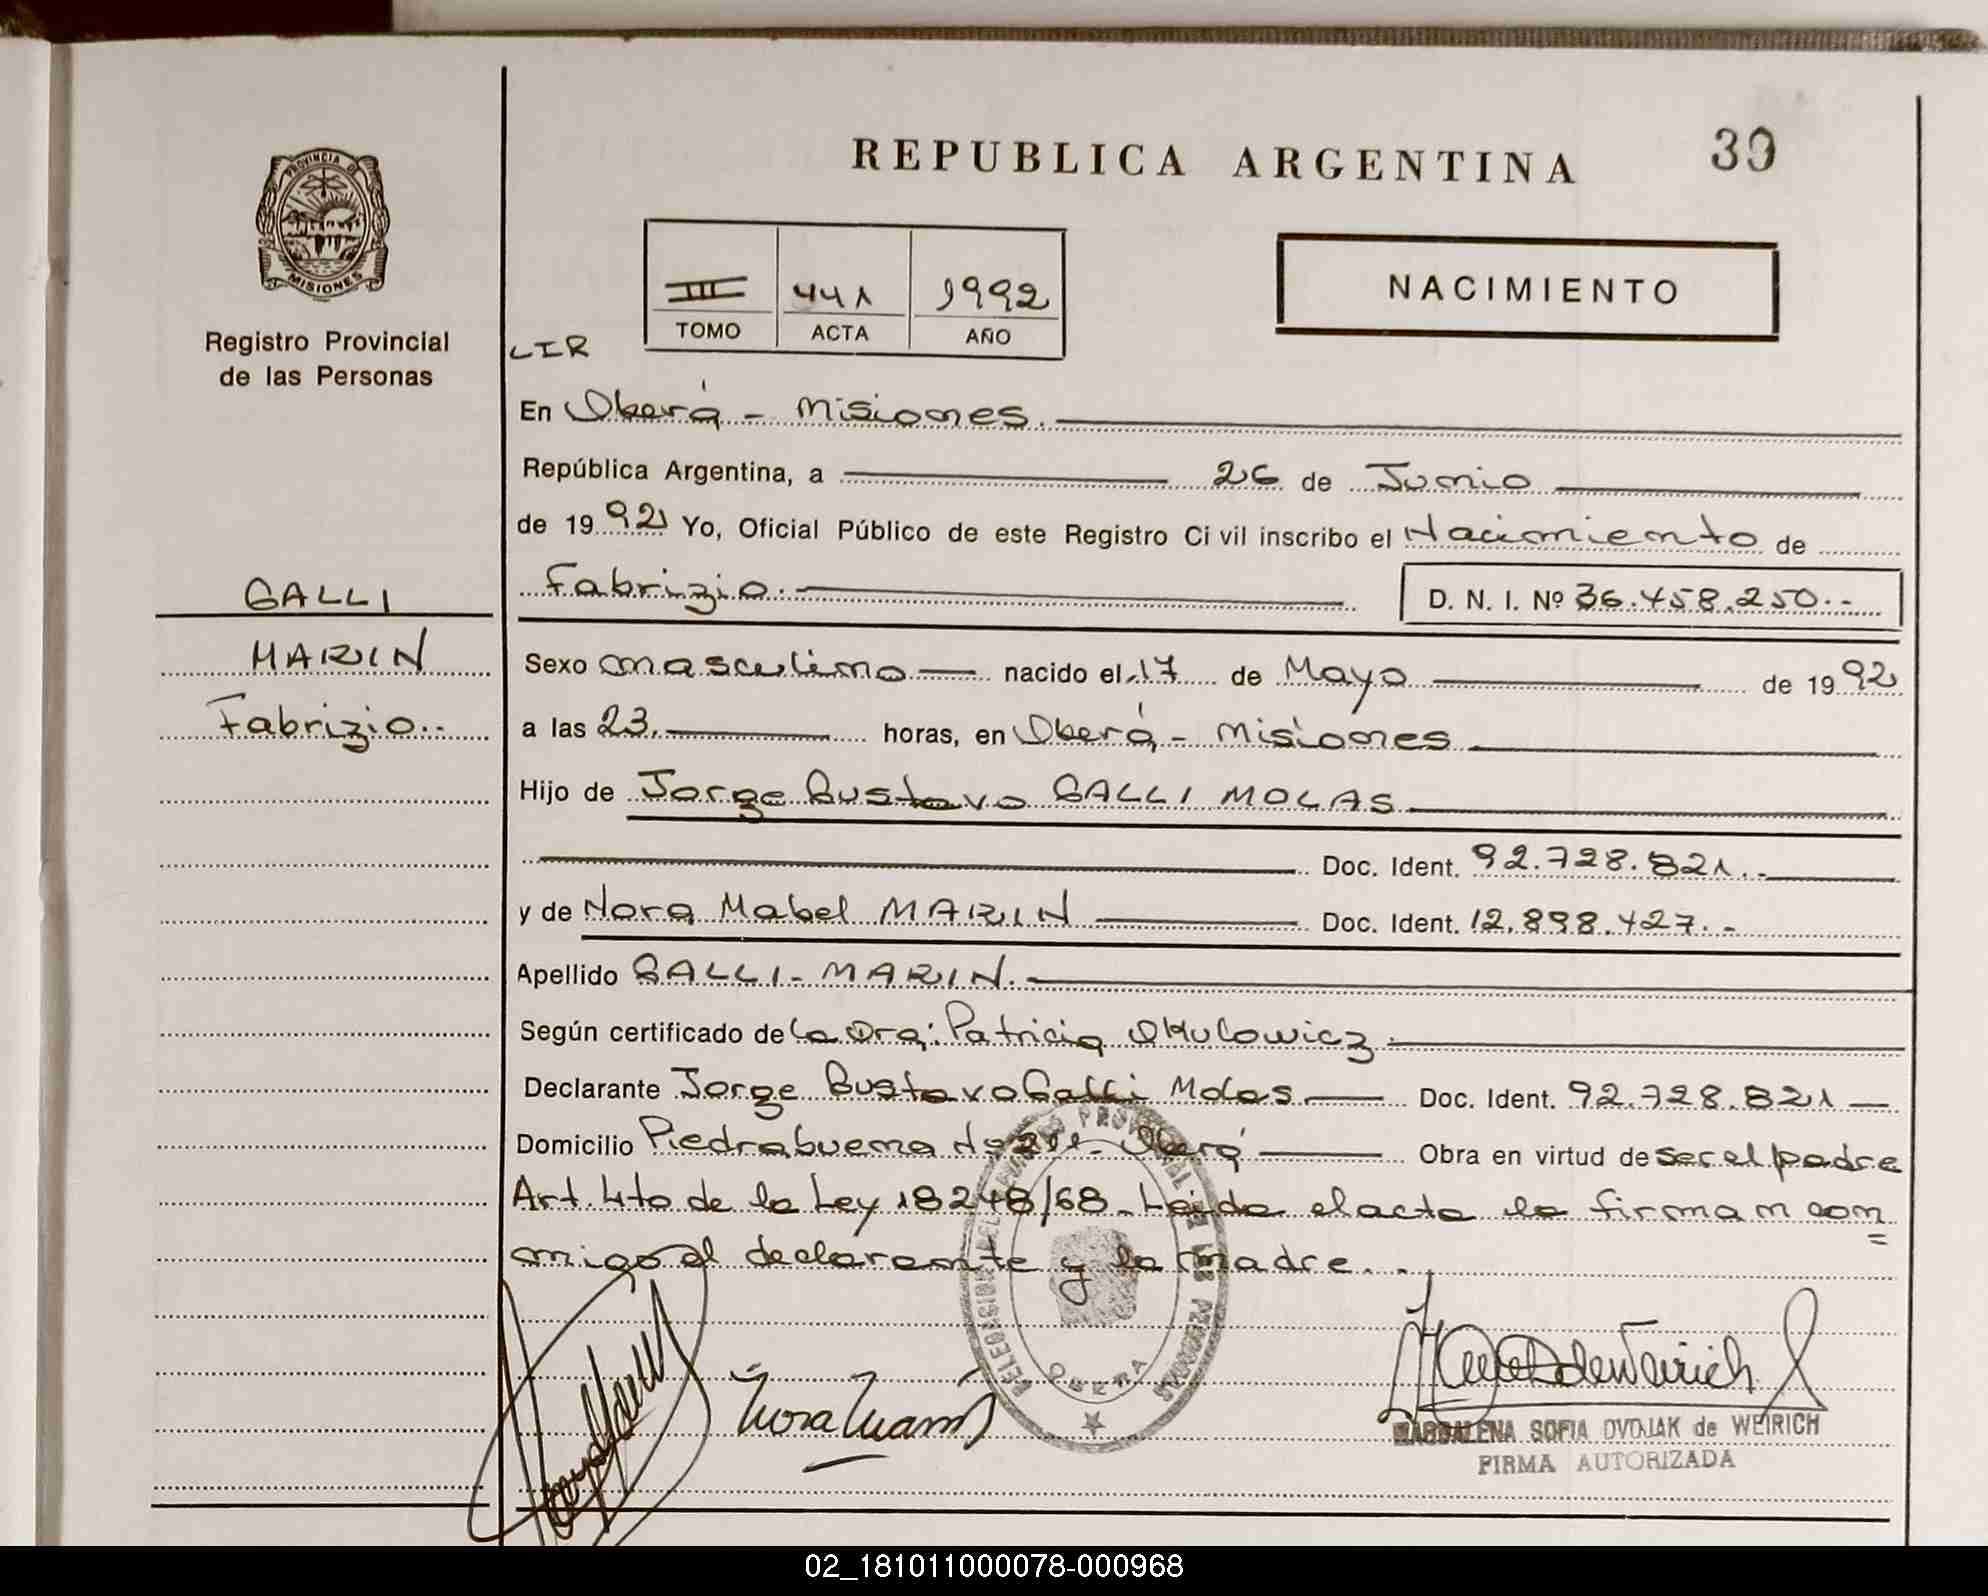 REPUBLICA ARGENTINA
39
PROVINCIA DE
MISIONES
Registro Provincial
de las Personas
III 441 1992
TOMO ACTA AÑO
NACIMIENTO
LIR
En Oberá - Misiones.
República Argentina, a 26 de Junio
de 1992 Yo, Oficial Público de este Registro Civil inscribo el Nacimiento de
Fabrizio. D. N. I. Nº 36.458.250.-
GALLI
MARIN
Fabrizio..
Sexo masculino nacido el 17 de Mayo de 1992
a las 23. horas, en Oberá - Misiones
Hijo de Jorge Gustavo GALLI MOLAS
Doc. Ident. 92.728.821.-
y de Nora Mabel MARIN Doc. Ident. 12.898.427.-
Apellido GALLI-MARIN.
Según certificado de la Dra: Patricia Okulowicz
Declarante Jorge Gustavo Galli Molas Doc. Ident. 92.728.821
Domicilio Piedrabuena Oberá Obra en virtud de ser el padre
Art. 4to de la Ley 18248/68. Leída el acta la firman con
migo el declarante y la madre..
REGISTRO PROVINCIAL DE LAS PERSONAS
OBERA
Nora Marin
MAGDALENA SOFIA DVOJAK de WEIRICH
FIRMA AUTORIZADA
02_181011000078-000968